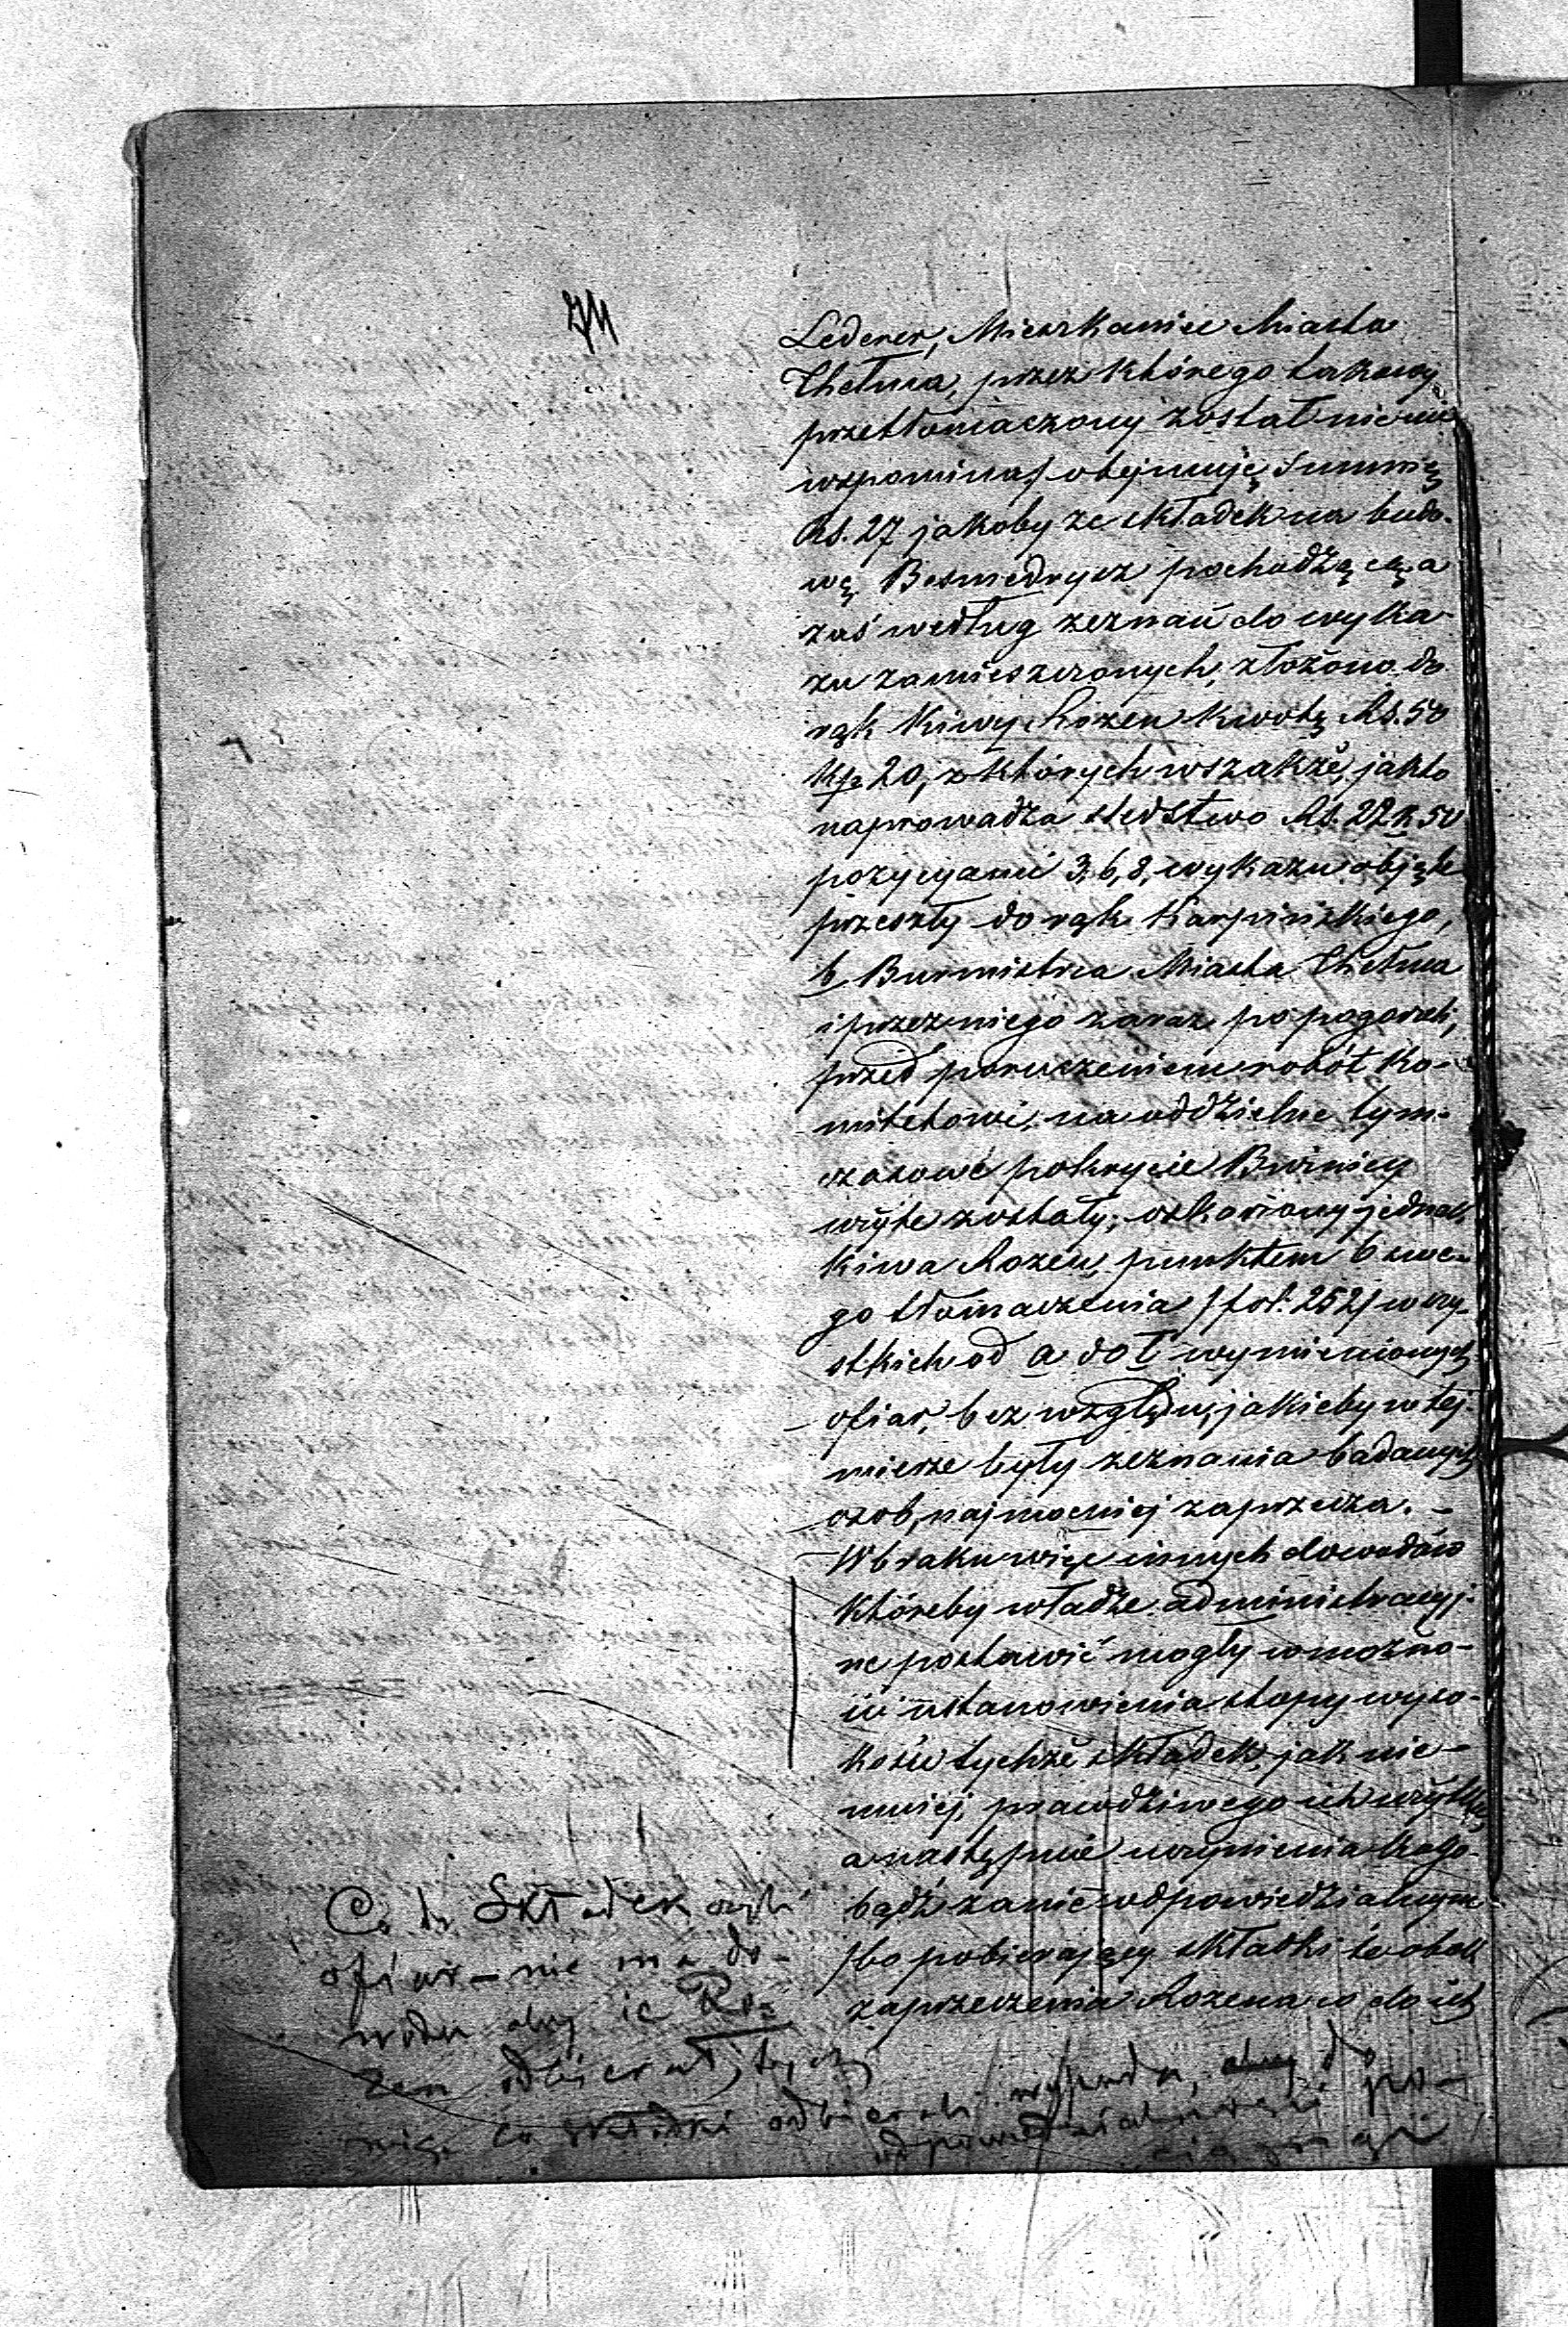 Lederer, Mieszkaniec Miasta
Chełma, przez którego takowy
przetłomaczony został nic nie
wspomina/ obejmuję Summę
Rs. 27 jakoby ze składek na budo-
wę Besmedrysz pochodzącą a
zaś według zeznań do wyka-
zu zamieszczonych, złożono do
rąk Kiwy Rozen kwotę Rs. 50
kp. 20, z których wszakże, jak to
naprowadza śledztwo Rs. 22 k 50
pozycyami 3, 6, 8, wykazu objęte
przeszły do rąk Karpińskiego,
b Burmistrza Miasta Chełma
i przez niego zaraz po pogorzeli,
przed poruczeniem robót Ko-
mitetowi, na oddzielne tym-
czasowe pokrycie Bożnicy
użyte zostały; oskarżony jednak
Kiwa Rozen, punktem 6 swe-
go tłomaczenia /fol. 252/ wszy-
stkich od a do ł wymienionych
ofiar, bez względu, jakieby w tej
mierze były zeznania badanych
osob, najmocniej zaprzecza. –
W braku więc innych dowodów
któreby władze administracyj-
ne postawić mogły w możno-
ści ustanowienia stopy wyso-
kości tychże składek, jak nie-
mniej, prawdziwego ich użytku
a następnie uczynienia kogo-
bądź za nie odpowiedzialnym
/bo pobierający składki te obok
zaprzeczenia Rozena co do ich
Co do Składek czyli
ofiar – nie ma do-
wodu aby je Ro-
zen odbierał, tych
więc co składki odbierali wypada, do
odpowiedzialności po-
ciągnąć